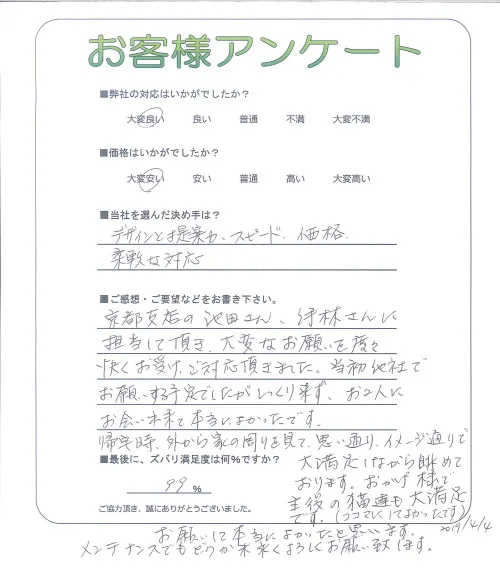 お客様アンケート
■弊社の対応はいかがでしたか？
大変良い 良い 普通 不満 大変不満
■価格はいかがでしたか？
大変安い 安い 普通 高い 大変高い
■当社を選んだ決め手は？
デザインと提案力、スピード、価格、
柔軟な対応
■ご感想・ご要望などをお書き下さい。
京都支店の池田さん、 林さんに
担当して頂き、大変なお願いを度々
快くお受け、ご対応頂きました。当初他社で
お願いする予定でしたがしっくり来ず、お2人に
お会い出来て本当によかったです。
帰宅時、外から家の周りを見て、思い通り、イメージ通りで
大満足しながら眺めて
おります。おかげ様で
主役の猫達も大満足
です。(ココマにしてよかったです)
■最後に、ズバリ満足度は何%ですか？
99 %
ご協力頂き、誠にありがとうございました。
2019/4/4
お願いして本当によかったと思います。
メンテナンスでもどうか末永くよろしくお願い致します。